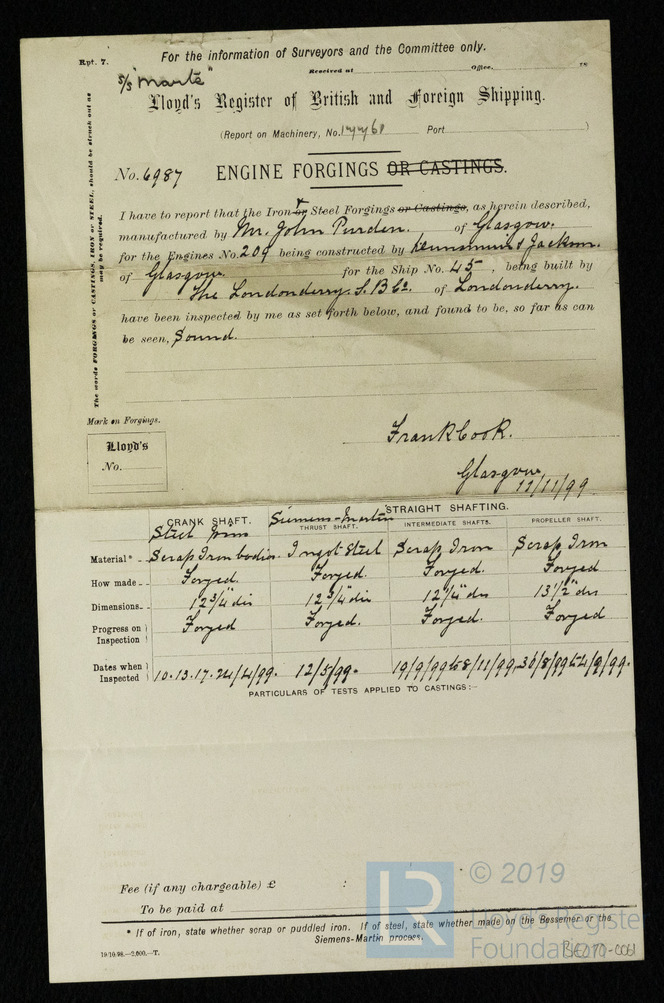 Rpt. 7.
For the information of Surveyors and the Committee only.
Received at Office, 18
S/S "Marte"
Lloyd's Register of British and Foreign Shipping.
(Report on Machinery, No. 17761 Port )
No. 6987 ENGINE FORGINGS OR CASTINGS.
The words FORGINGS or CASTINGS, IRON or STEEL, should be struck out as may be required.
I have to report that the Iron or Steel Forgings or Castings, as herein described,
manufactured by Mr. John Purden. of Glasgow.
for the Engines No. 209 being constructed by & Jackson.
of Glasgow. for the Ship No. 45, being built by
The Londonderry S. B Co. of Londonderry.
have been inspected by me as set forth below, and found to be, so far as can
be seen, Sound.
Mark on Forgings.
Lloyd's
No.
Frank Cook.
Glasgow
11/11/99
CRANK SHAFT. STRAIGHT SHAFTING.
THRUST SHAFT. INTERMEDIATE SHAFTS. PROPELLER SHAFT.
Steel pins Siemens-Martin
Material* Scrap Iron bodies Ingot Steel Scrap Iron Scrap Iron
How made Forged. Forged. Forged. Forged
Dimensions 12 3/4" dia 12 3/4" dia 12 1/4" dia 13 1/2" dia
Progress on Inspection Forged Forged. Forged. Forged
Dates when Inspected 10.13.17.24/4/99. 12/5/99. 19/9/99 to 8/11/99. 30/8/99 to 4/9/99.
PARTICULARS OF TESTS APPLIED TO CASTINGS:—
Fee (if any chargeable) £ :
To be paid at
* If of iron, state whether scrap or puddled iron. If of steel, state whether made on the Bessemer or the
Siemens-Martin process.
19/10.98.—2,000.—T.
LR
© 2019
Lloyd's Register
Foundation